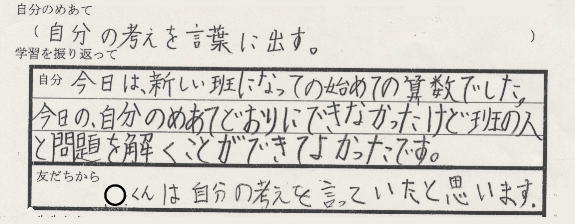 自分のめあて
(自分の考えを言葉に出す。)
学習を振り返って
自分 今日は、新しい班になっての始めての算数でした。
今日の、自分のめあてどおりにできなかったけど班の人
と問題を解くことができてよかったです。
友だちから
○くんは自分の考えを言っていたと思います。